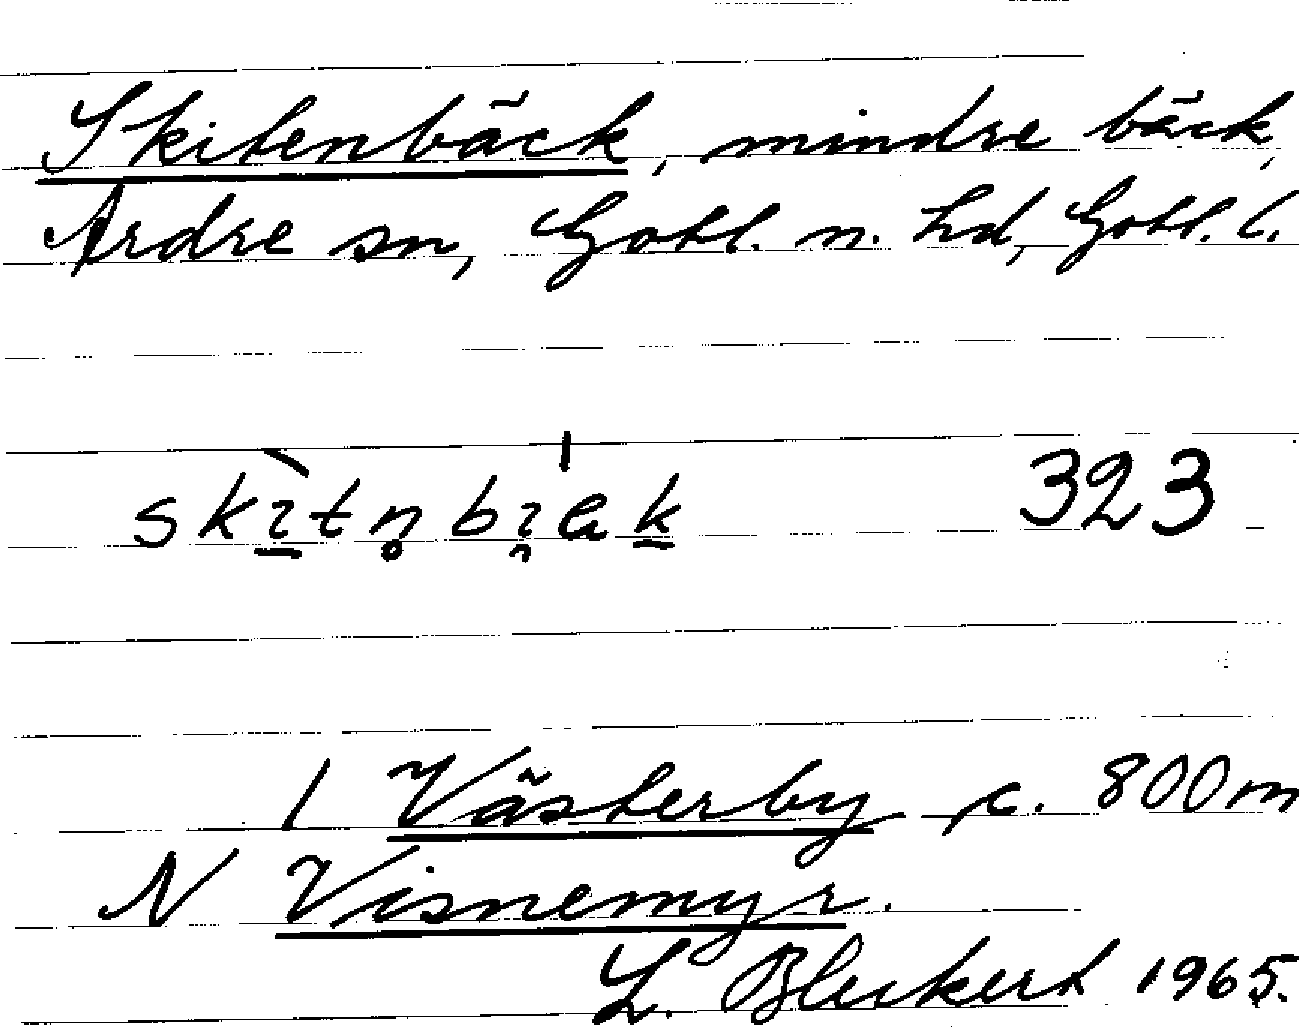 Skitenbäck, mindre bäck,
Ardre sn, Gotl. n. hd, Gotl. l.
323
I Västerby c. 800 m
N Visnemyr.
L. Bleckert 1965.